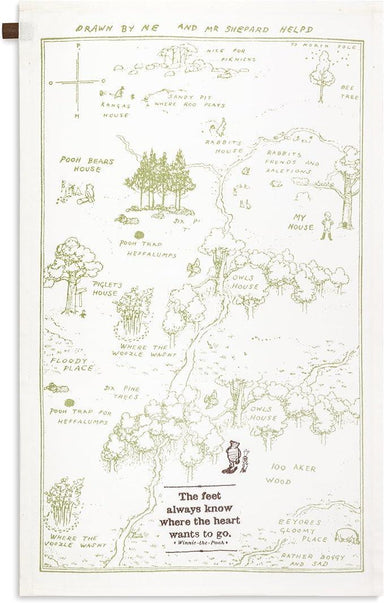 DRAWN BY ME AND MR SHEPARD HELPD
NICE FOR
PICKNICKS
TO NORTH POLE
BEE
TREE
P
H
KANGAS
HOUSE
SANDY PIT
WHERE ROO PLAYS
RABBITS
HOUSE
RABBITS
FRENDS AND
RALETIONS
POOH BEARS
HOUSE
SIX PI
T
MY
HOUSE
POOH TRAP
HEFFALUMPS
OWLS
HOUSE
PIGLETS
HOUSE
WHERE THE
WOOZLE WASNT
FLOODY
PLACE
SIX PINE
TREES
POOH TRAP FOR
HEFFALUMPS
OWLS
HOUSE
100 AKER
WOOD
The feet
always know
where the heart
wants to go.
• Winnie-the-Pooh •
WHERE THE
WOOZLE WASNT
EEYORES
GLOOMY
PLACE
RATHER BOGGY
AND SAD